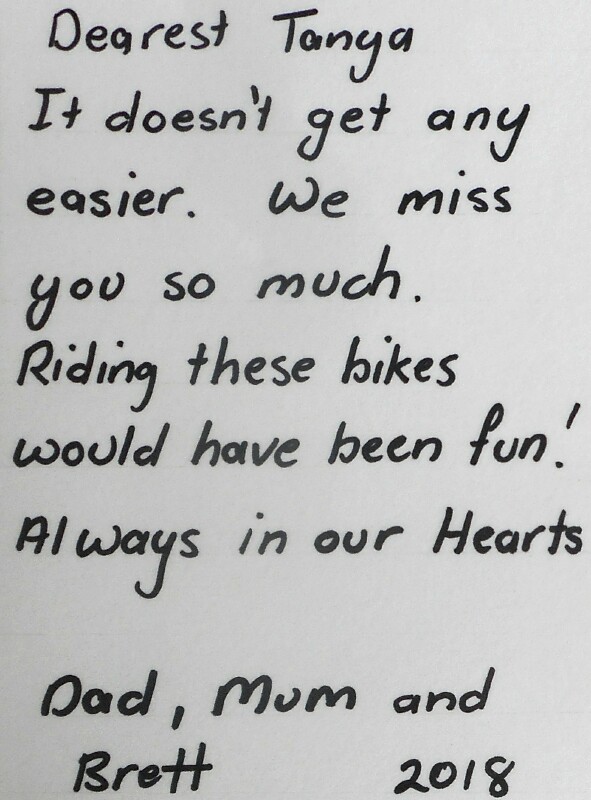 Dearest Tanya
It doesn't get any
easier. We miss
you so much.
Riding these bikes
would have been fun!
Always in our Hearts
Dad, Mum and
Brett 2018